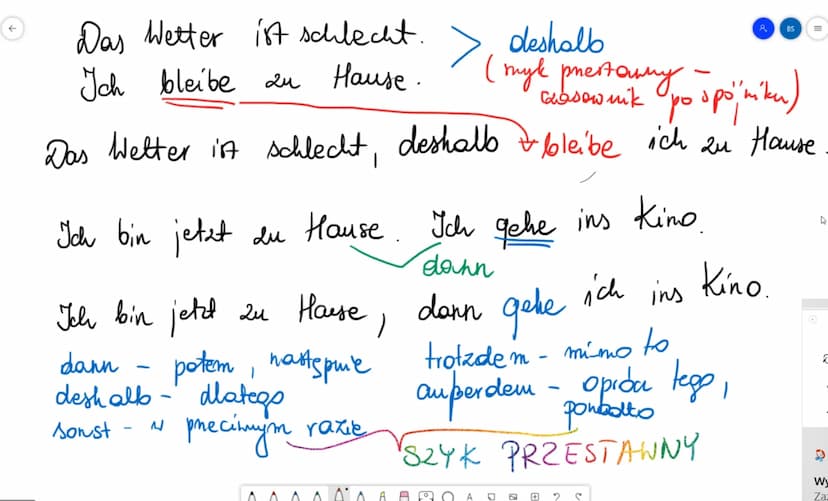 BS
Das Wetter ist schlecht. > deshalb
Ich bleibe zu Hause. (szyk przestawny -
czasownik po spójniku)
Das Wetter ist schlecht, deshalb bleibe ich zu Hause.
Ich bin jetzt zu Hause. Ich gehe ins Kino.
dann
Ich bin jetzt zu Hause, dann gehe ich ins Kino.
dann - potem, następnie trotzdem - mimo to
deshalb - dlatego außerdem - oprócz tego,
ponadto
sonst - w przeciwnym razie
SZYK PRZESTAWNY